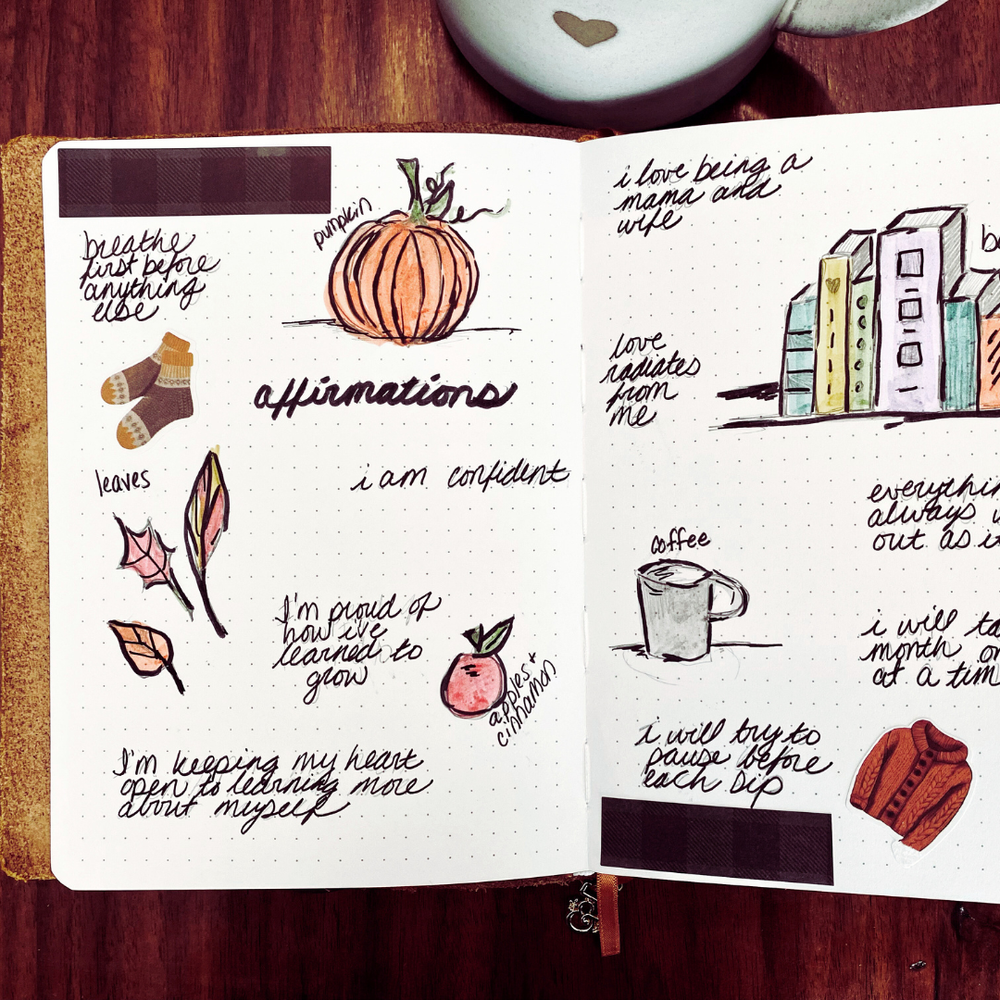 pumpkin
breathe
first before
anything
else
affirmations
leaves
i am confident
I'm proud of
how i've
learned to
grow
apples +
cinnamon
I'm keeping my heart
open to learning more
about myself
i love being a
mama and
wife
love
radiates
from
me
coffee
always
out as
i will
month
at a
i will try to
pause before
each sip